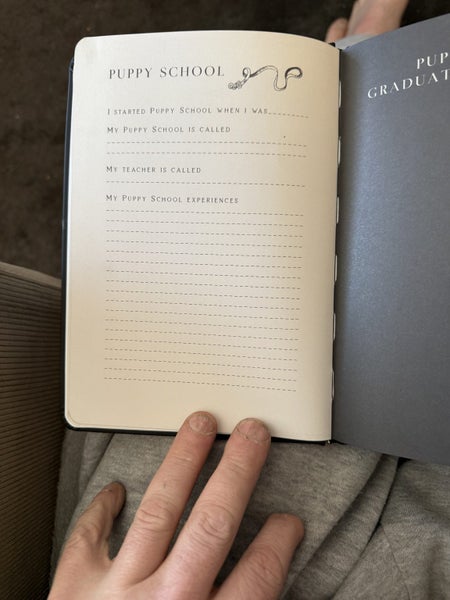 PUPPY SCHOOL
I STARTED PUPPY SCHOOL WHEN I WAS
MY PUPPY SCHOOL IS CALLED
MY TEACHER IS CALLED
MY PUPPY SCHOOL EXPERIENCES
PUP
GRADUAT